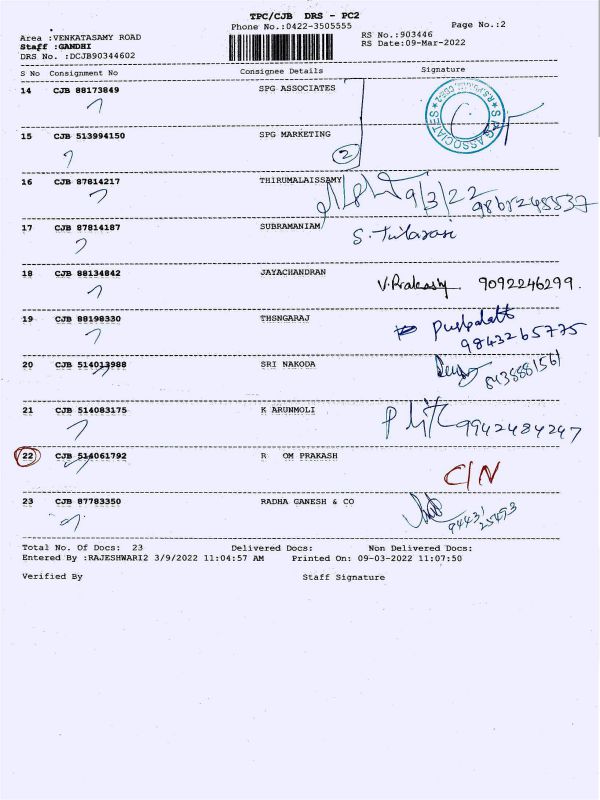 TPC/CJB DRS - PC2
Phone No.:0422-3505555
Page No.:2
Area :VENKATASAMY ROAD
RS No.:903446
Staff :GANDHI
RS Date:09-Mar-2022
DRS No. :DCJB90344602
S No Consignment No Consignee Details Signature
14 CJB 88173849 SPG ASSOCIATES
15 CJB 513994150 SPG MARKETING
2
16 CJB 87814217 THIRUMALAISSAMY
9/3/22
17 CJB 87814187 SUBRAMANIAM
S. Tulasasi
18 CJB 88134842 JAYACHANDRAN
V.Prakash 9092246299.
19 CJB 88198330 THSNGARAJ
9843265775
20 CJB 514013988 SRI NAKODA
21 CJB 514083175 K ARUNMOLI
9942484247
22 CJB 514061792 R OM PRAKASH
C/N
23 CJB 87783350 RADHA GANESH & CO
Total No. Of Docs: 23 Delivered Docs: Non Delivered Docs:
Entered By :RAJESHWARI2 3/9/2022 11:04:57 AM Printed On: 09-03-2022 11:07:50
Verified By Staff Signature